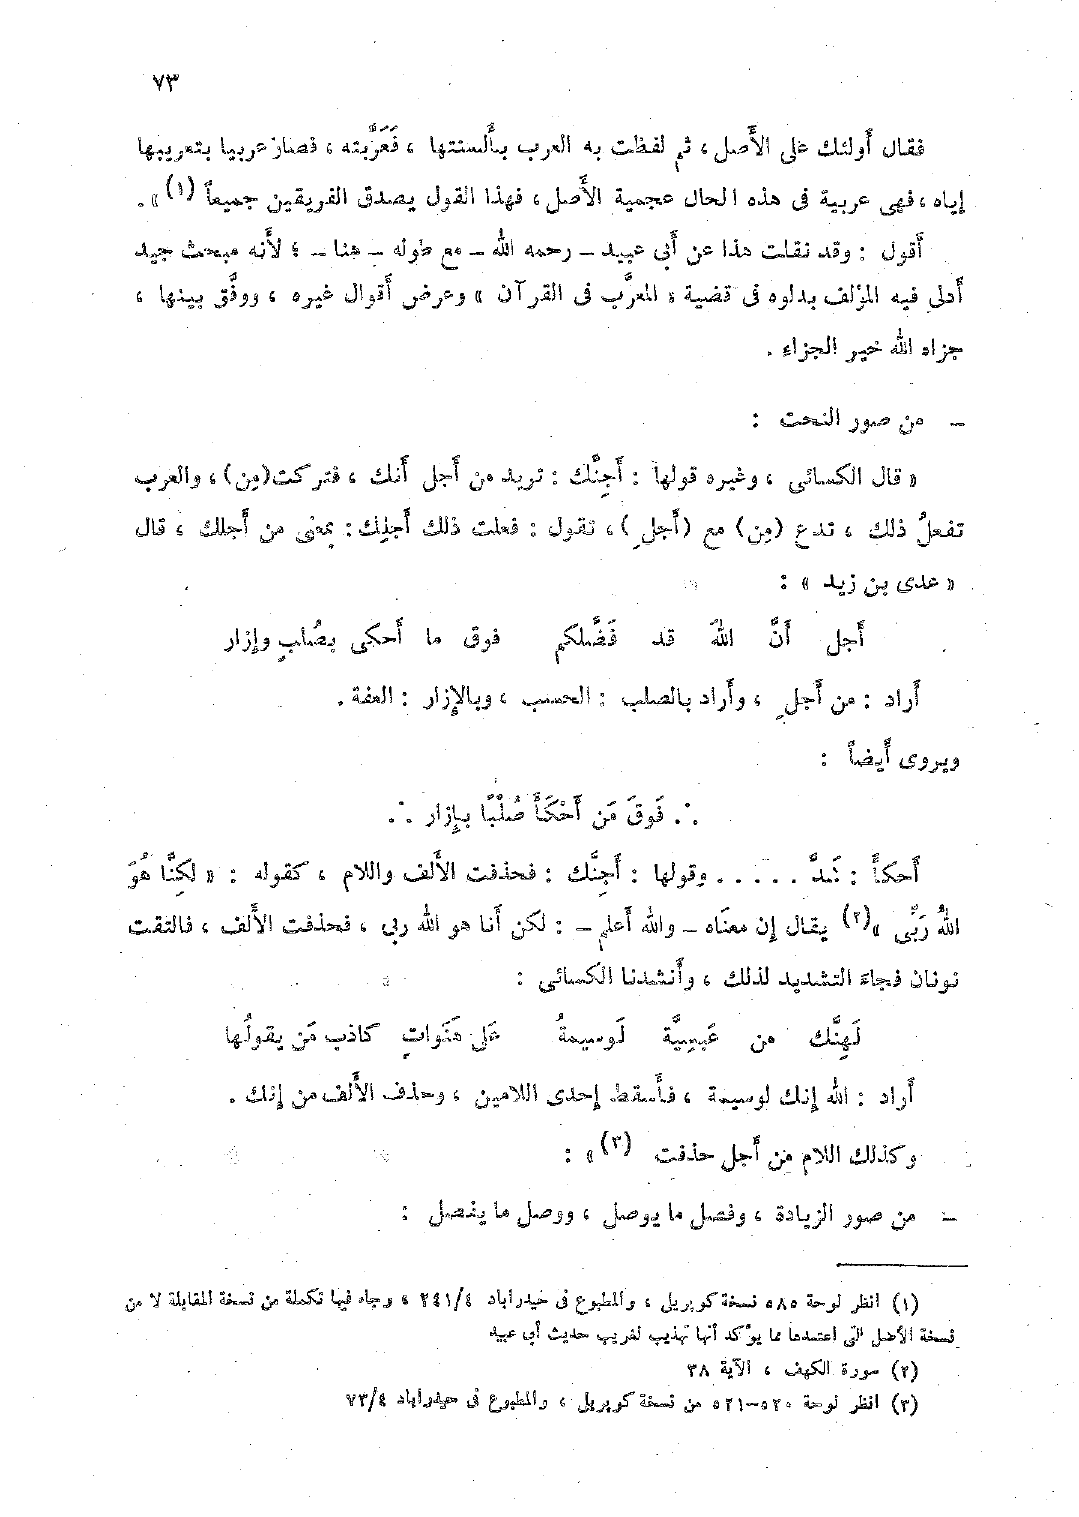 ٧٣
فقال أولئك على الأصل ، ثم لفظت به العرب بألسنتها ، فَعَرَّبته ، فصار عربيا بتعريبها
إياه ، فهى عربية فى هذه الحال عجمية الأصل ، فهذا القول يصدق الفريقين جميعاً (١) » .
أقول : وقد نقلت هذا عن أبى عبيد – رحمه الله – مع طوله – هنا – ؛ لأنه مبحث جيد
أدلى فيه المؤلف بدلوه فى قضية « المعرَّب فى القرآن » وعرض أقوال غيره ، ووفَّق بينها ،
جزاه الله خير الجزاء .
– من صور النحت :
« قال الكسائى ، وغيره قولها : أَجِنَّك : تريد من أجل أنك ، فتركت (مِن) ، والعرب
تفعلُ ذلك ، تدع (مِن) مع (أجلِ) ، تقول : فعلت ذلك أجلِك : بمعنى من أجلك ، قال
« عدى بن زيد » :
أجل أنَّ اللهَ قد فَضَّلكم فوق ما أحكى بصُلبٍ وإزار
أراد : من أجلِ ، وأراد بالصلب : الحسب ، وبالإزار : العفة .
ويروى أيضاً :
∴ فَوقَ مَن أَحْكَأَ صُلْبًا بإِزار ∴
أحكأَ : شدَّ . . . . . وقولها : أَجِنَّك : فحذفت الألف واللام ، كقوله : « لكِنَّا هُوَ
اللهُ رَبِّى » (٢) يقال إن معنَاه – والله أعلم – : لكن أنا هو الله ربى ، فحذفت الألف ، فالتقت
نونان فجاءَ التشديد لذلك ، وأنشدنا الكسائى :
لَهِنَّك من عَبسِيَّة لَوسيمةُ على هَنَواتٍ كاذب مَن يقولُها
أراد : لله إنك لوسيمة ، فأسقط إحدى اللامين ، وحذف الألف من إنك .
وكذلك اللام من أجل حذفت (٣) » :
– من صور الزيادة ، وفصل ما يوصل ، ووصل ما يفصل :
(١) انظر لوحة ٥٨٥ نسخة كوبريل ، والمطبوع فى حيدراباد ٢٤١/٤ ، وجاء فيها تكملة من نسخة المقابلة لا من
نسخة الأصل التى اعتمدها مما يؤكد أنها تهذيب لغريب حديث أبى عبيد
(٢) سورة الكهف ، الآية ٣٨
(٣) انظر لوحة ٥٢٠–٥٢١ من نسخة كوبريل ، والمطبوع فى حيدراباد ٧٣/٤